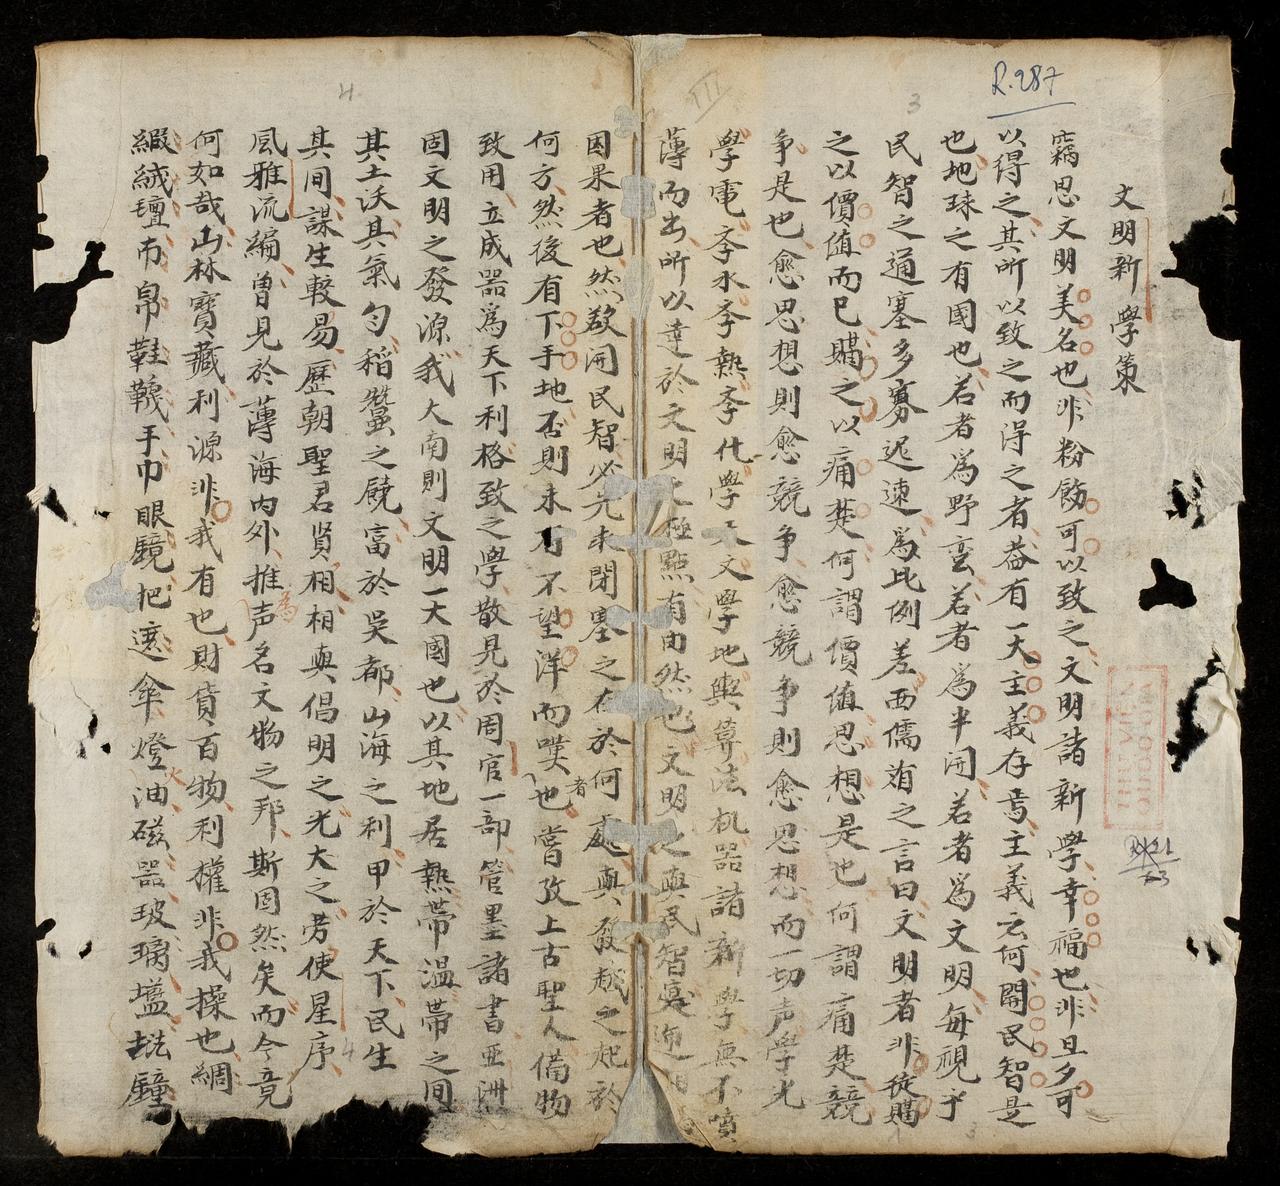 R.287
文明新學策
竊思文明美名也非粉飾可以致之文明諸新學幸福也非旦夕可
以得之其所以致之而得之者蓋有一大主義存焉主義云何開民智是
也地球之有國也若者為野蛮若者為半開若者為文明每視乎
民智之通塞多寡迟速為比例差西儒有之言曰文明者非徒購
之以價值而已購之以痛楚何謂價值思想是也何謂痛楚競
争是也愈思想則愈競争愈競争則愈思想而一切声學光
學電斈水斈熱斈化學天文學地輿算法机器諸新學無不噴
薄而出所以達於文明之極點有由然也文明之與民智寔迭相
因果者也然欲開民智必先求閉塞之在於何處與發越之起於
何方然後有下手地否則未有不望洋而嘆者也嘗攷上古聖人備物
致用立成器為天下利格致之學散見於周官一部管墨諸書亜洲
固文明之發源我大南則文明一大國也以其地居熱帶温帶之間
其土沃其氣勻稻蠶之饒富於吳都山海之利甲於天下民生
其間謀生較易歷朝聖君賢相相與倡明之光大之劳使星序
風雅流編曾見於薄海内外推為声名文物之邦斯固然矣而今竟
何如哉山林寶藏利源非我有也財貨百物利權非我操也綢
緞絨氊布帛鞋韈手巾眼鏡把遮傘燈火油磁器玻璃壒𡋾鐘
THU VIEN
3
4